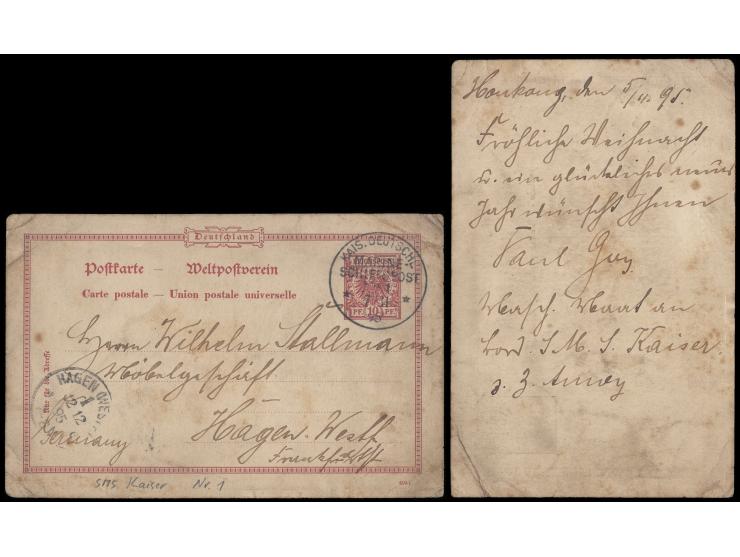 Deutschland
Postkarte — Weltpostverein
Carte postale — Union postale universelle
KAIS. DEUTSCHE
MARINE-
SCHIFFSPOST
PF. 10 PF.
Nur für die Adresse
Herrn Wilhelm Stallmann
Möbelgeschäft
HAGEN (WESTF
12 12
95
Germany
Hagen. Westf.
Frankf.
SMS Kaiser Nr. 1
Honkong, den 5/11 95.
Fröhliche Weihnacht
u. ein glückliches neues
Jahr wünscht Ihnen
Paul
Masch. Maat an
bord S. M. S. Kaiser
z. Z. Amoy